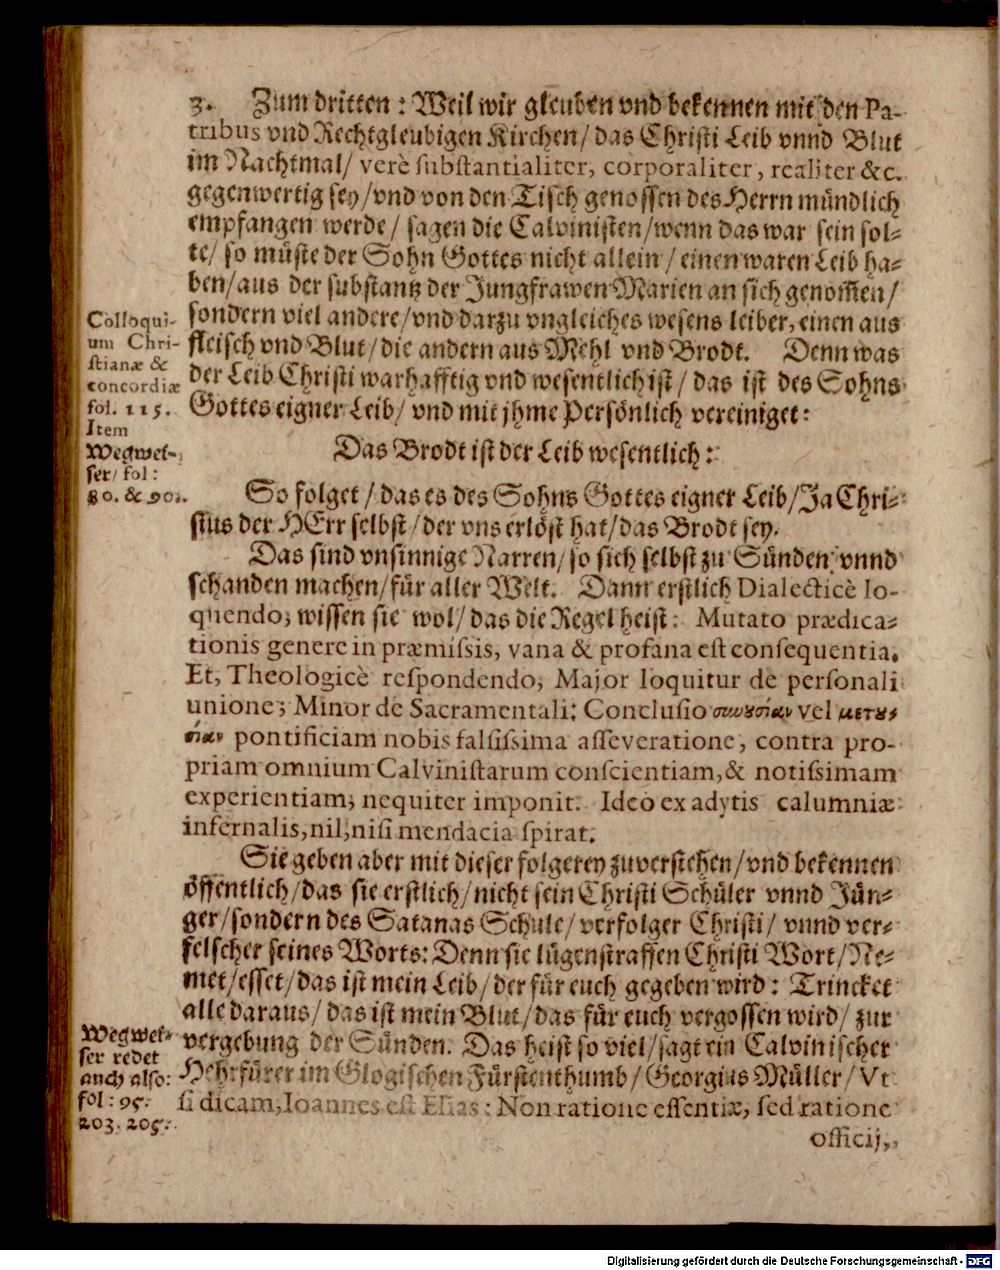 3. Zum dritten : Weil wir gleuben vnd bekennen mit den Pa-
tribus vnd Rechtgleubigen Kirchen/ das Christi Leib vnnd Blut
im Nachtmal/ verè substantialiter, corporaliter, realiter &c.
gegenwertig sey/vnd von den Tisch genossen des Herrn mündlich
empfangen werde/ sagen die Calvinisten/wenn das war sein sol-
te/ so müste der Sohn Gottes nicht allein/ einen waren Leib ha-
ben/aus der substantz der Jungfrawen Marien an sich genom̃en/
sondern viel andere/vnd darzu vngleiches wesens leiber, einen aus
fleisch vnd Blut/die andern aus Mehl vnd Brodt. Denn was
der Leib Christi warhafftig vnd wesentlich ist/ das ist des Sohns
Gottes eigner Leib/ vnd mit jhme Persönlich vereiniget:
Colloqui-
um Chri-
stianæ &
concordiæ
fol. 115.
Item
Wegwei-
ser/ fol:
80. & 90.
Das Brodt ist der Leib wesentlich:
So folget/das es des Sohns Gottes eigner Leib/Ja Chri-
stus der HErr selbst/der vns erlöst hat/das Brodt sey.
Das sind vnsinnige Narren/so sich selbst zu Sünden vnnd
schanden machen/für aller Welt. Dann erstlich Dialecticè lo-
quendo, wissen sie wol/das die Regel heist: Mutato prædica-
tionis genere in præmissis, vana & profana est consequentia.
Et, Theologicè respondendo, Major loquitur de personali
unione; Minor de Sacramentali: Conclusio συνουσίαν vel μετου-
σίαν pontificiam nobis falsissima asseveratione, contra pro-
priam omnium Calvinistarum conscientiam,& notissimam
experientiam, nequiter imponit. Ideo ex adytis calumniæ
infernalis, nil, nisi mendacia spirat.
Sie geben aber mit dieser folgerey zuverstehen/vnd bekennen
öffentlich/das sie erstlich/nicht sein Christi Schüler vnnd Jün-
ger/sondern des Satanas Schule/verfolger Christi/ vnnd ver-
felscher seines Worts: Denn sie lügenstraffen Christi Wort/Ne-
met/esset/das ist mein Leib/der für euch gegeben wird: Trincket
alle daraus/das ist mein Blut/das für euch vergossen wird/ zur
vergebung der Sünden. Das heist so viel/sagt ein Calvinischer
Hehrfürer im Glogischen Fürstenthumb/Georgius Müller/Vt
si dicam, Ioannes est Elias: Non ratione essentiæ, sed ratione
Wegwei-
ser redet
auch also:
fol: 95.
203. 205.
officij,
Digitalisierung gefördert durch die Deutsche Forschungsgemeinschaft - DFG